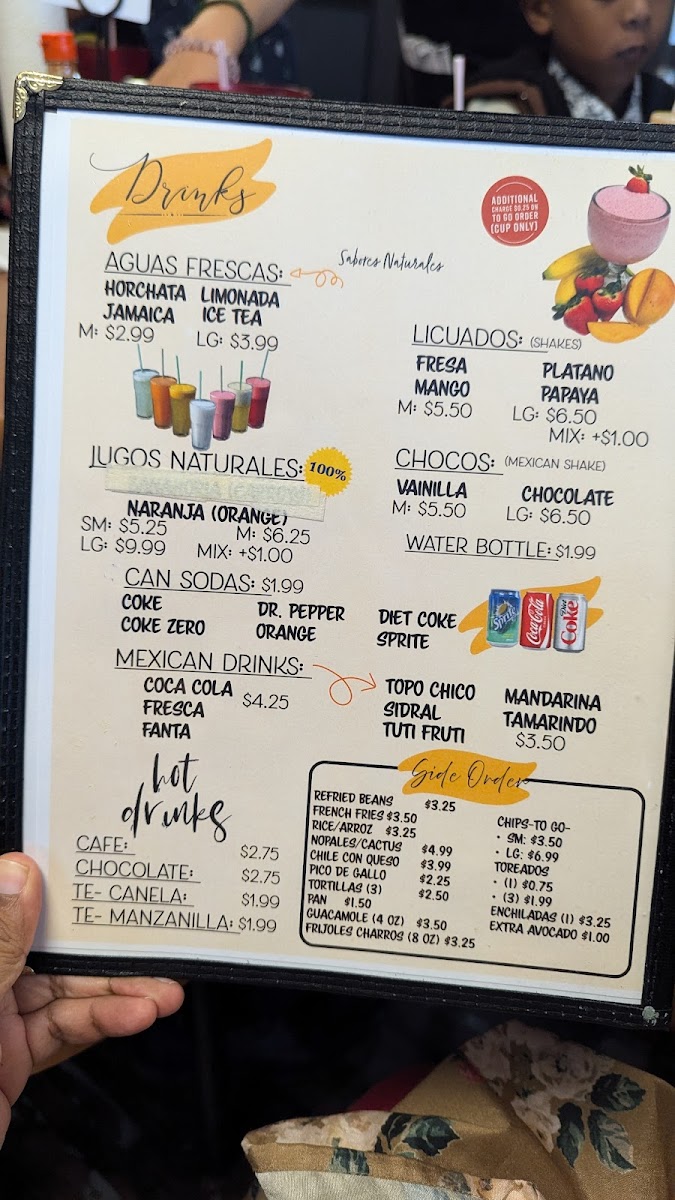 Drinks
ADDITIONAL
CHARGE $0.25 ON
TO GO ORDER
(CUP ONLY)
AGUAS FRESCAS:
Sabores Naturales
HORCHATA LIMONADA
JAMAICA ICE TEA
M: $2.99 LG: $3.99
LICUADOS: (SHAKES)
FRESA PLATANO
MANGO PAPAYA
M: $5.50 LG: $6.50
MIX: +$1.00
JUGOS NATURALES: 100%
NARANJA (ORANGE)
SM: $5.25 M: $6.25
LG: $9.99 MIX: +$1.00
CHOCOS: (MEXICAN SHAKE)
VAINILLA CHOCOLATE
M: $5.50 LG: $6.50
WATER BOTTLE: $1.99
CAN SODAS: $1.99
COKE DR. PEPPER DIET COKE
COKE ZERO ORANGE SPRITE
Sprite
Coca-Cola
Diet Coke
MEXICAN DRINKS:
COCA COLA
FRESCA $4.25
FANTA
TOPO CHICO MANDARINA
SIDRAL TAMARINDO
TUTI FRUTI $3.50
hot
drinks
CAFE: $2.75
CHOCOLATE: $2.75
TE- CANELA: $1.99
TE- MANZANILLA: $1.99
Side Order
REFRIED BEANS $3.25
FRENCH FRIES $3.50
RICE/ARROZ $3.25
NOPALES/CACTUS $4.99
CHILE CON QUESO $3.99
PICO DE GALLO $2.25
TORTILLAS (3) $2.50
PAN $1.50
GUACAMOLE (4 OZ) $3.50
FRIJOLES CHARROS (8 OZ) $3.25
CHIPS-TO GO-
• SM: $3.50
• LG: $6.99
TOREADOS
• (1) $0.75
• (3) $1.99
ENCHILADAS (1) $3.25
EXTRA AVOCADO $1.00